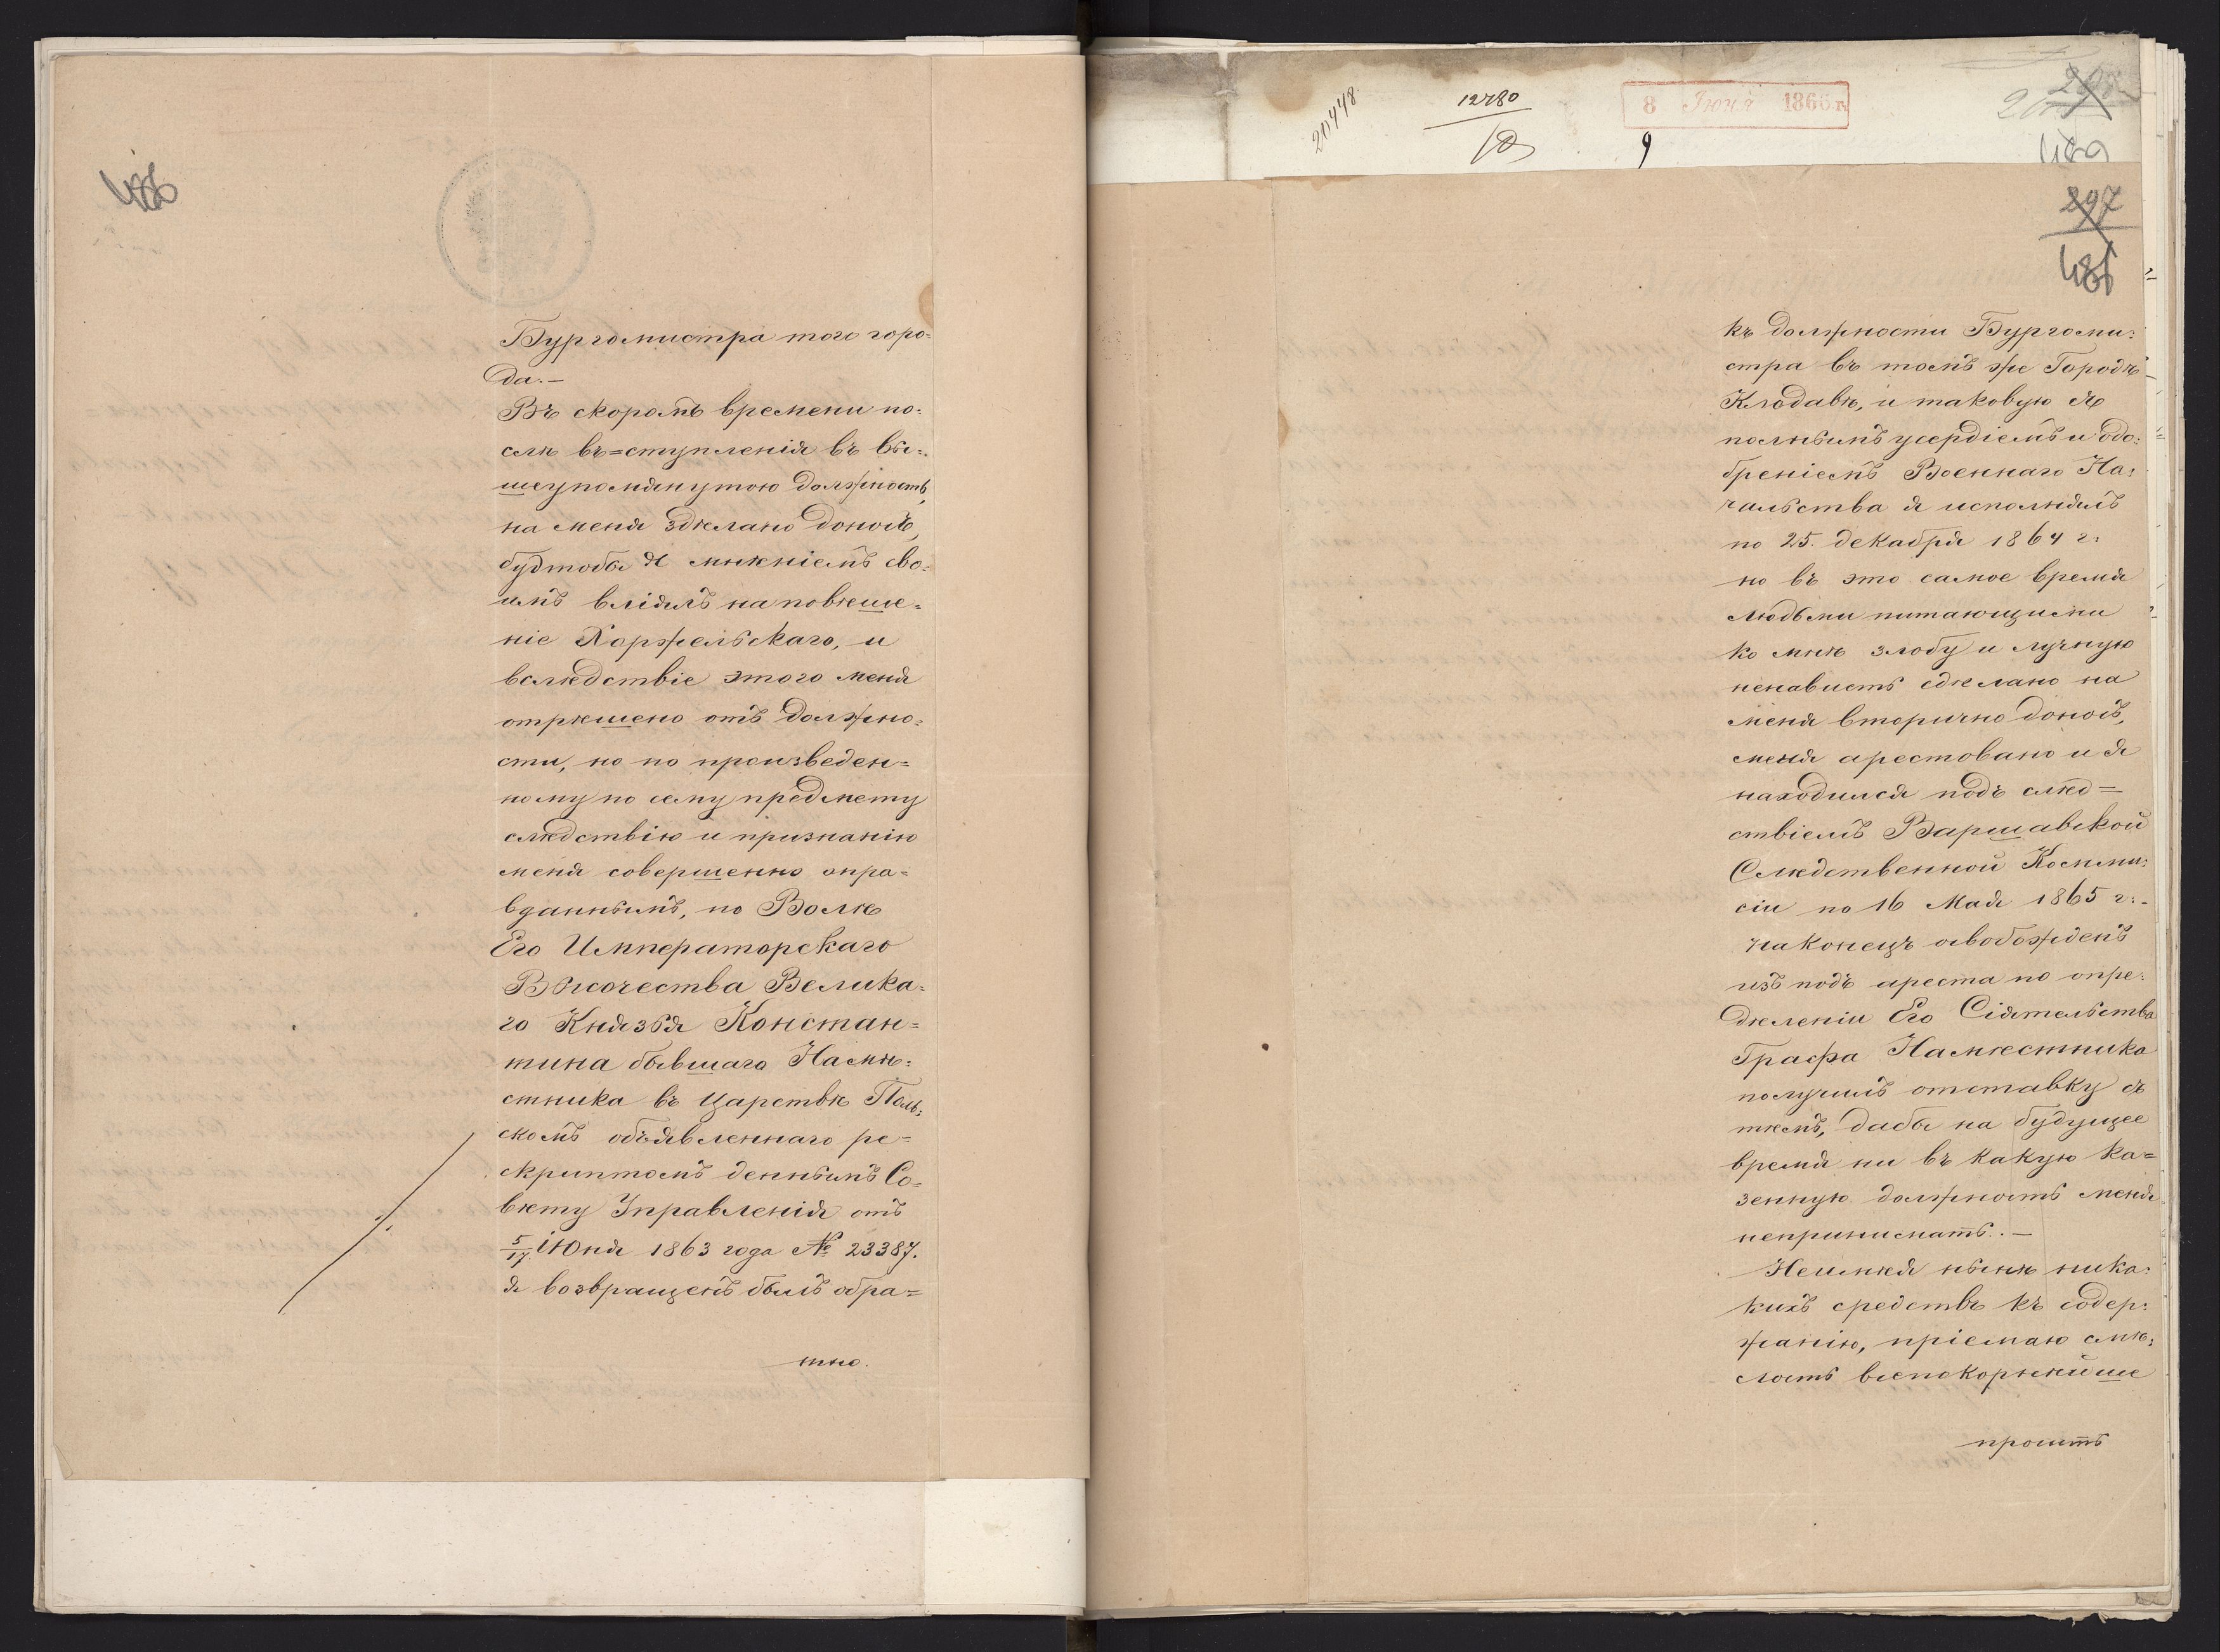 486
Бургомистра того горо=
да.—
Въ скоромъ времени по=
слѣ въ=ступленія въ вы=
шеупомянутою должность,
на меня здѣлано доносъ,
будтобы я мнѣніемъ сво=
имъ вліялъ на повѣше=
ніе Коржельскаго, и
вслѣдствіе этого меня
отрѣшено отъ должно=
сти, но по произведен=
ному по сему предмету
слѣдствію и признанію
меня совершенно опра=
вданнымъ, по Волѣ
Его Императорскаго
Высочества Велика=
го Князья Констан=
тина бывшаго Намѣ=
стника въ Царствѣ Поль=
скомъ объявленнаго ре=
скриптомъ деннымъ Со=
вѣту Управленія отъ
5/17 Іюня 1863 года № 23387.
я возвращенъ былъ обра=
тно.
20448
12780
10
8 Іюня 1866 г.
9
489
297
486
къ должности Бургоми=
стра въ томъ же Городѣ
Клодавѣ, и таковую съ
полнымъ усердіемъ и одо=
бреніемъ Военнаго На=
чальства я исполнялъ
по 25. декабря 1864 г:
но въ это самое время
людьми питающими
ко мнѣ злобу и лучную
ненависть сдѣлано на
меня вторично доносъ,
меня арестовано и я
находился подъ слѣд=
ствіемъ Варшавской
Слѣдственной Коммми=
сіи по 16 Мая 1865 г:-
наконецъ освобожденъ
изъ подъ ареста по опре=
дѣленіи Его Сіятельства
Графа Намѣстника
получилъ отставку съ
тѣмъ, дабы на будущее
время ни въ какую ка=
зенную должность меня
непринимать.—
Неимѣя нынѣ ника=
кихъ средствъ къ содер=
жанію, пріемаю смѣ=
лость всепокорнѣйше
просить